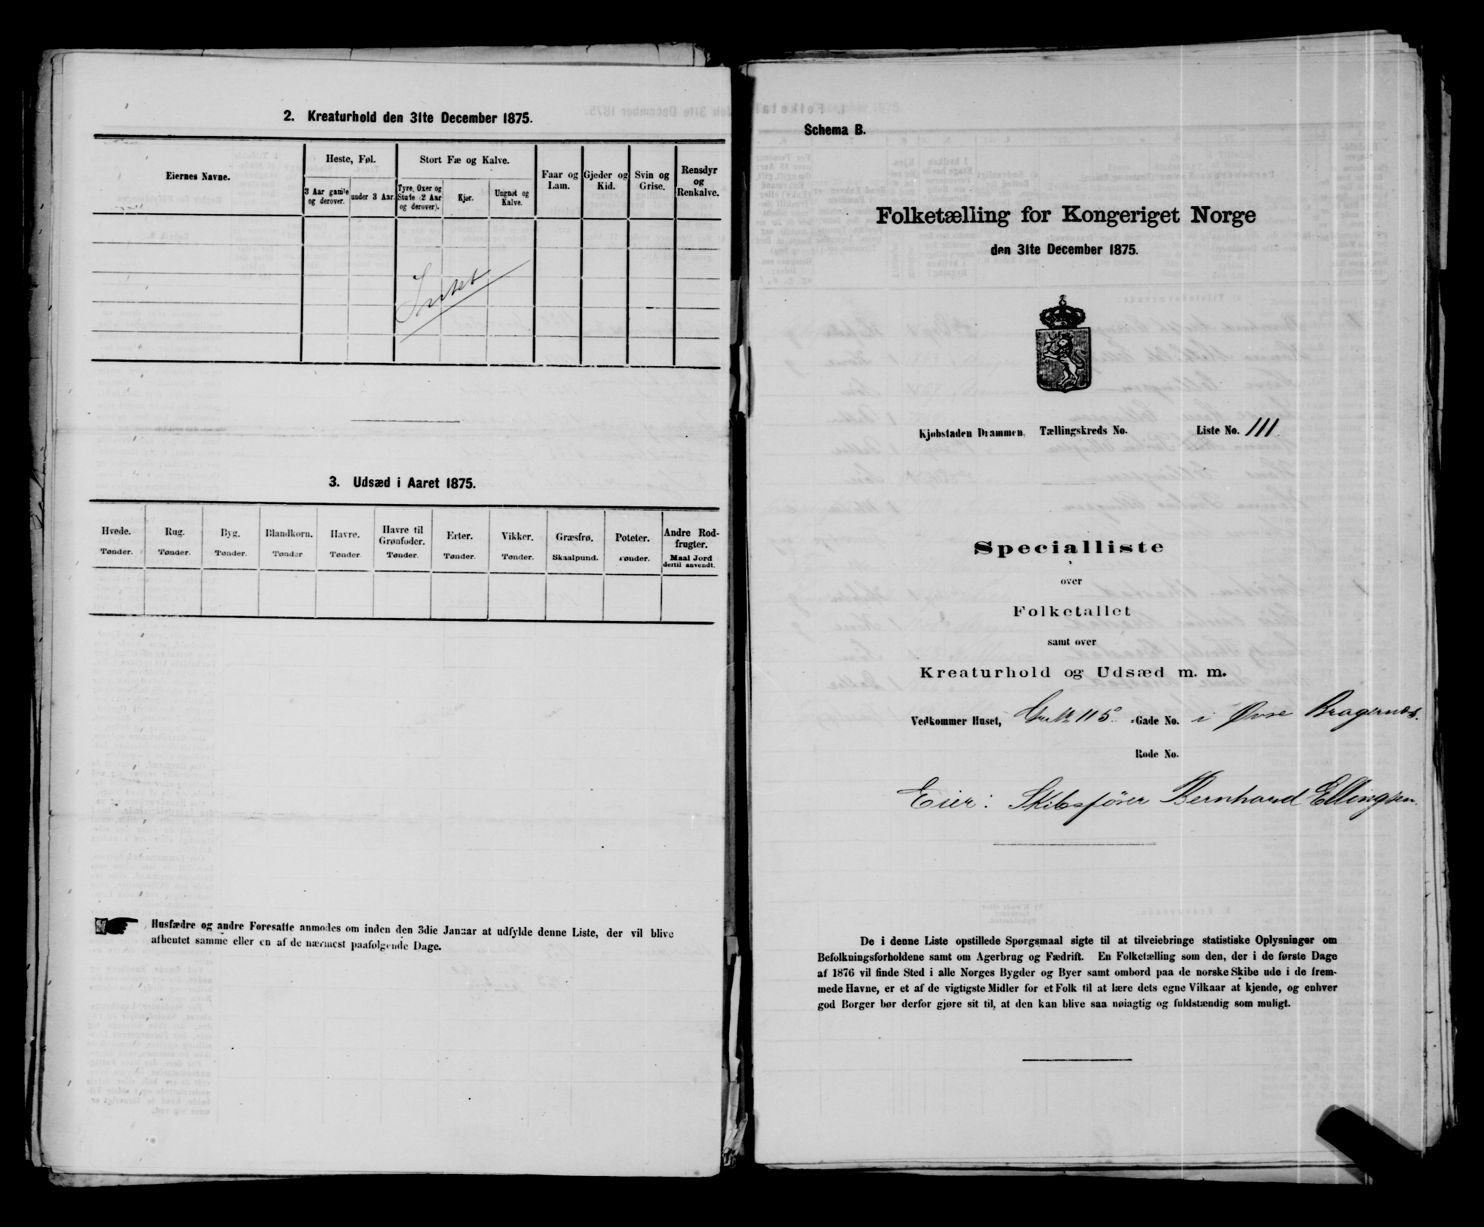 2. Kreaturhold den 31te December 1875.
Eiernes Navne.
Heste, Føl.
Stort Fæ og Kalve.
Faar og
Lam.
Gjeder og
Kid.
Svin og
Grise.
Rensdyr
og
Renkalve.
3 Aar gamle
og derover.
under 3 Aar.
Tyre, Oxer og
Stute (2 Aar
og derover).
Kjør.
Ungnøt og
Kalve.
Intet
3. Udsæd i Aaret 1875.
Hvede.
Rug.
Byg.
Blandkorn.
Havre.
Havre til
Grønfoder.
Erter.
Vikker.
Græsfrø.
Poteter.
Andre Rod-
frugter.
Tønder.
Tønder.
Tønder.
Tønder
Tønder.
Tønder.
Tønder.
Tønder.
Skaalpund.
Tønder.
Maal Jord
dertil anvendt.
Husfædre og andre Foresatte anmodes om inden den 3die Januar at udfylde denne Liste, der vil blive
afhentet samme eller en af de nærmest paafølgende Dage.
Schema B.
Folketælling for Kongeriget Norge
den 31te December 1875.
Kjøbstaden Drammen, Tællingskreds No. Liste No. 111
Specialliste
over
Folketallet
samt over
Kreaturhold og Udsæd m. m.
Vedkommer Huset, 115 Gade No. i Øvre Bragernes.
Rode No.
Eier: Skibsfører Bernhard Ellingsen.
De i denne Liste opstillede Spørgsmaal sigte til at tilveiebringe statistiske Oplysninger om
Befolkningsforholdene samt om Agerbrug og Fædrift. En Folketælling som den, der i de første Dage
af 1876 vil finde Sted i alle Norges Bygder og Byer samt ombord paa de norske Skibe ude i de frem-
mede Havne, er et af de vigtigste Midler for et Folk til at lære dets egne Vilkaar at kjende, og enhver
god Borger bør derfor gjøre sit til, at den kan blive saa nøiagtig og fuldstændig som muligt.